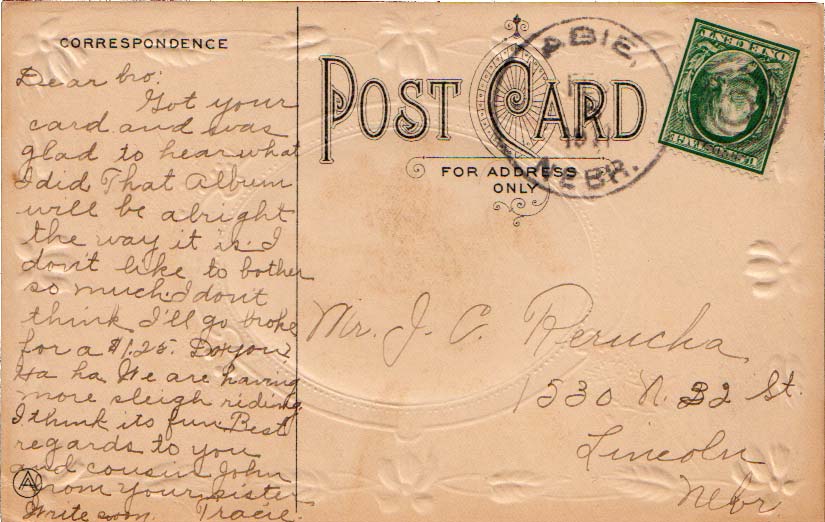 CORRESPONDENCE
Dear bro:
Got your
card and was
glad to hear what
I did. That Album
will be alright
the way it is. I
don't like to bother
so much. I don't
think I'll go broke
for a $1.25. Do you?
Ha ha. We are having
more sleigh riding.
I think its fun. Best
regards to you
and cousin John
From your sister
Write soon. Tracie.
POST CARD
FOR ADDRESS
ONLY
ABIE,
1911
NEBR.
ONE CENT
Mr. J. C. Perucha
1530 N. 32 St.
Lincoln
Nebr
A